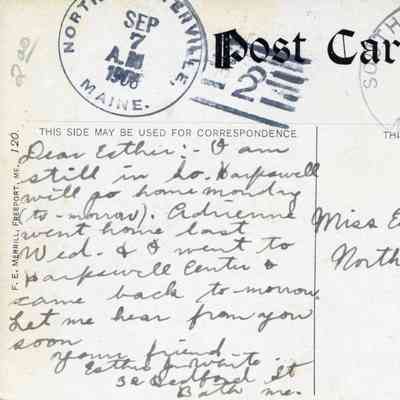 NORTH
SEP
7
A.M
1908
MAINE.
2
Post Car
SOUTH
THIS SIDE MAY BE USED FOR CORRESPONDENCE
THI
F. E. MERRILL, FREEPORT, ME. 120.
Dear Esther:- I am
still in So. Harpswell
will go home monday
(to-morrow). Adrienne
went home last
Wed. & I went to
Harpswell Center &
came back to-morrow.
Let me hear from you
soon
Your friend
Esther Waite
32 Bedford St
Bath me.
Miss E
North